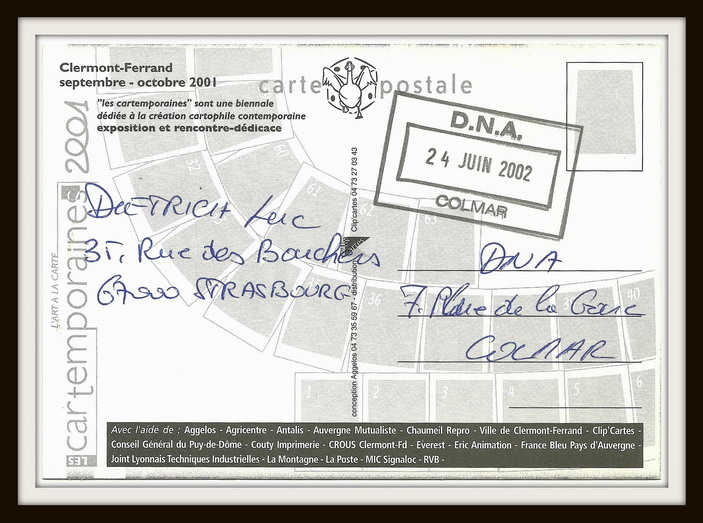 Clermont-Ferrand
septembre - octobre 2001
"les cartemporaines" sont une biennale
dédiée à la création cartophile contemporaine
exposition et rencontre-dédicace
carte postale
D.N.A.
24 JUIN 2002
COLMAR
L'ART A LA CARTE
LES cartemporaines 2001
DIETRICH Luc
Rue des Bouchers
STRASBOURG
DNA
7. Place de la Gare
COLMAR
conception Aggelos 04 73 35 59 67 - distribution Clip'cartes 04 73 27 03 43
32
60
61
62
63
36
40
1
2
3
4
5
6
Avec l'aide de : Aggelos - Agricentre - Antalis - Auvergne Mutualiste - Chaumeil Repro - Ville de Clermont-Ferrand - Clip'Cartes -
Conseil Général du Puy-de-Dôme - Couty Imprimerie - CROUS Clermont-Fd - Everest - Eric Animation - France Bleu Pays d'Auvergne -
Joint Lyonnais Techniques Industrielles - La Montagne - La Poste - MIC Signaloc - RVB -